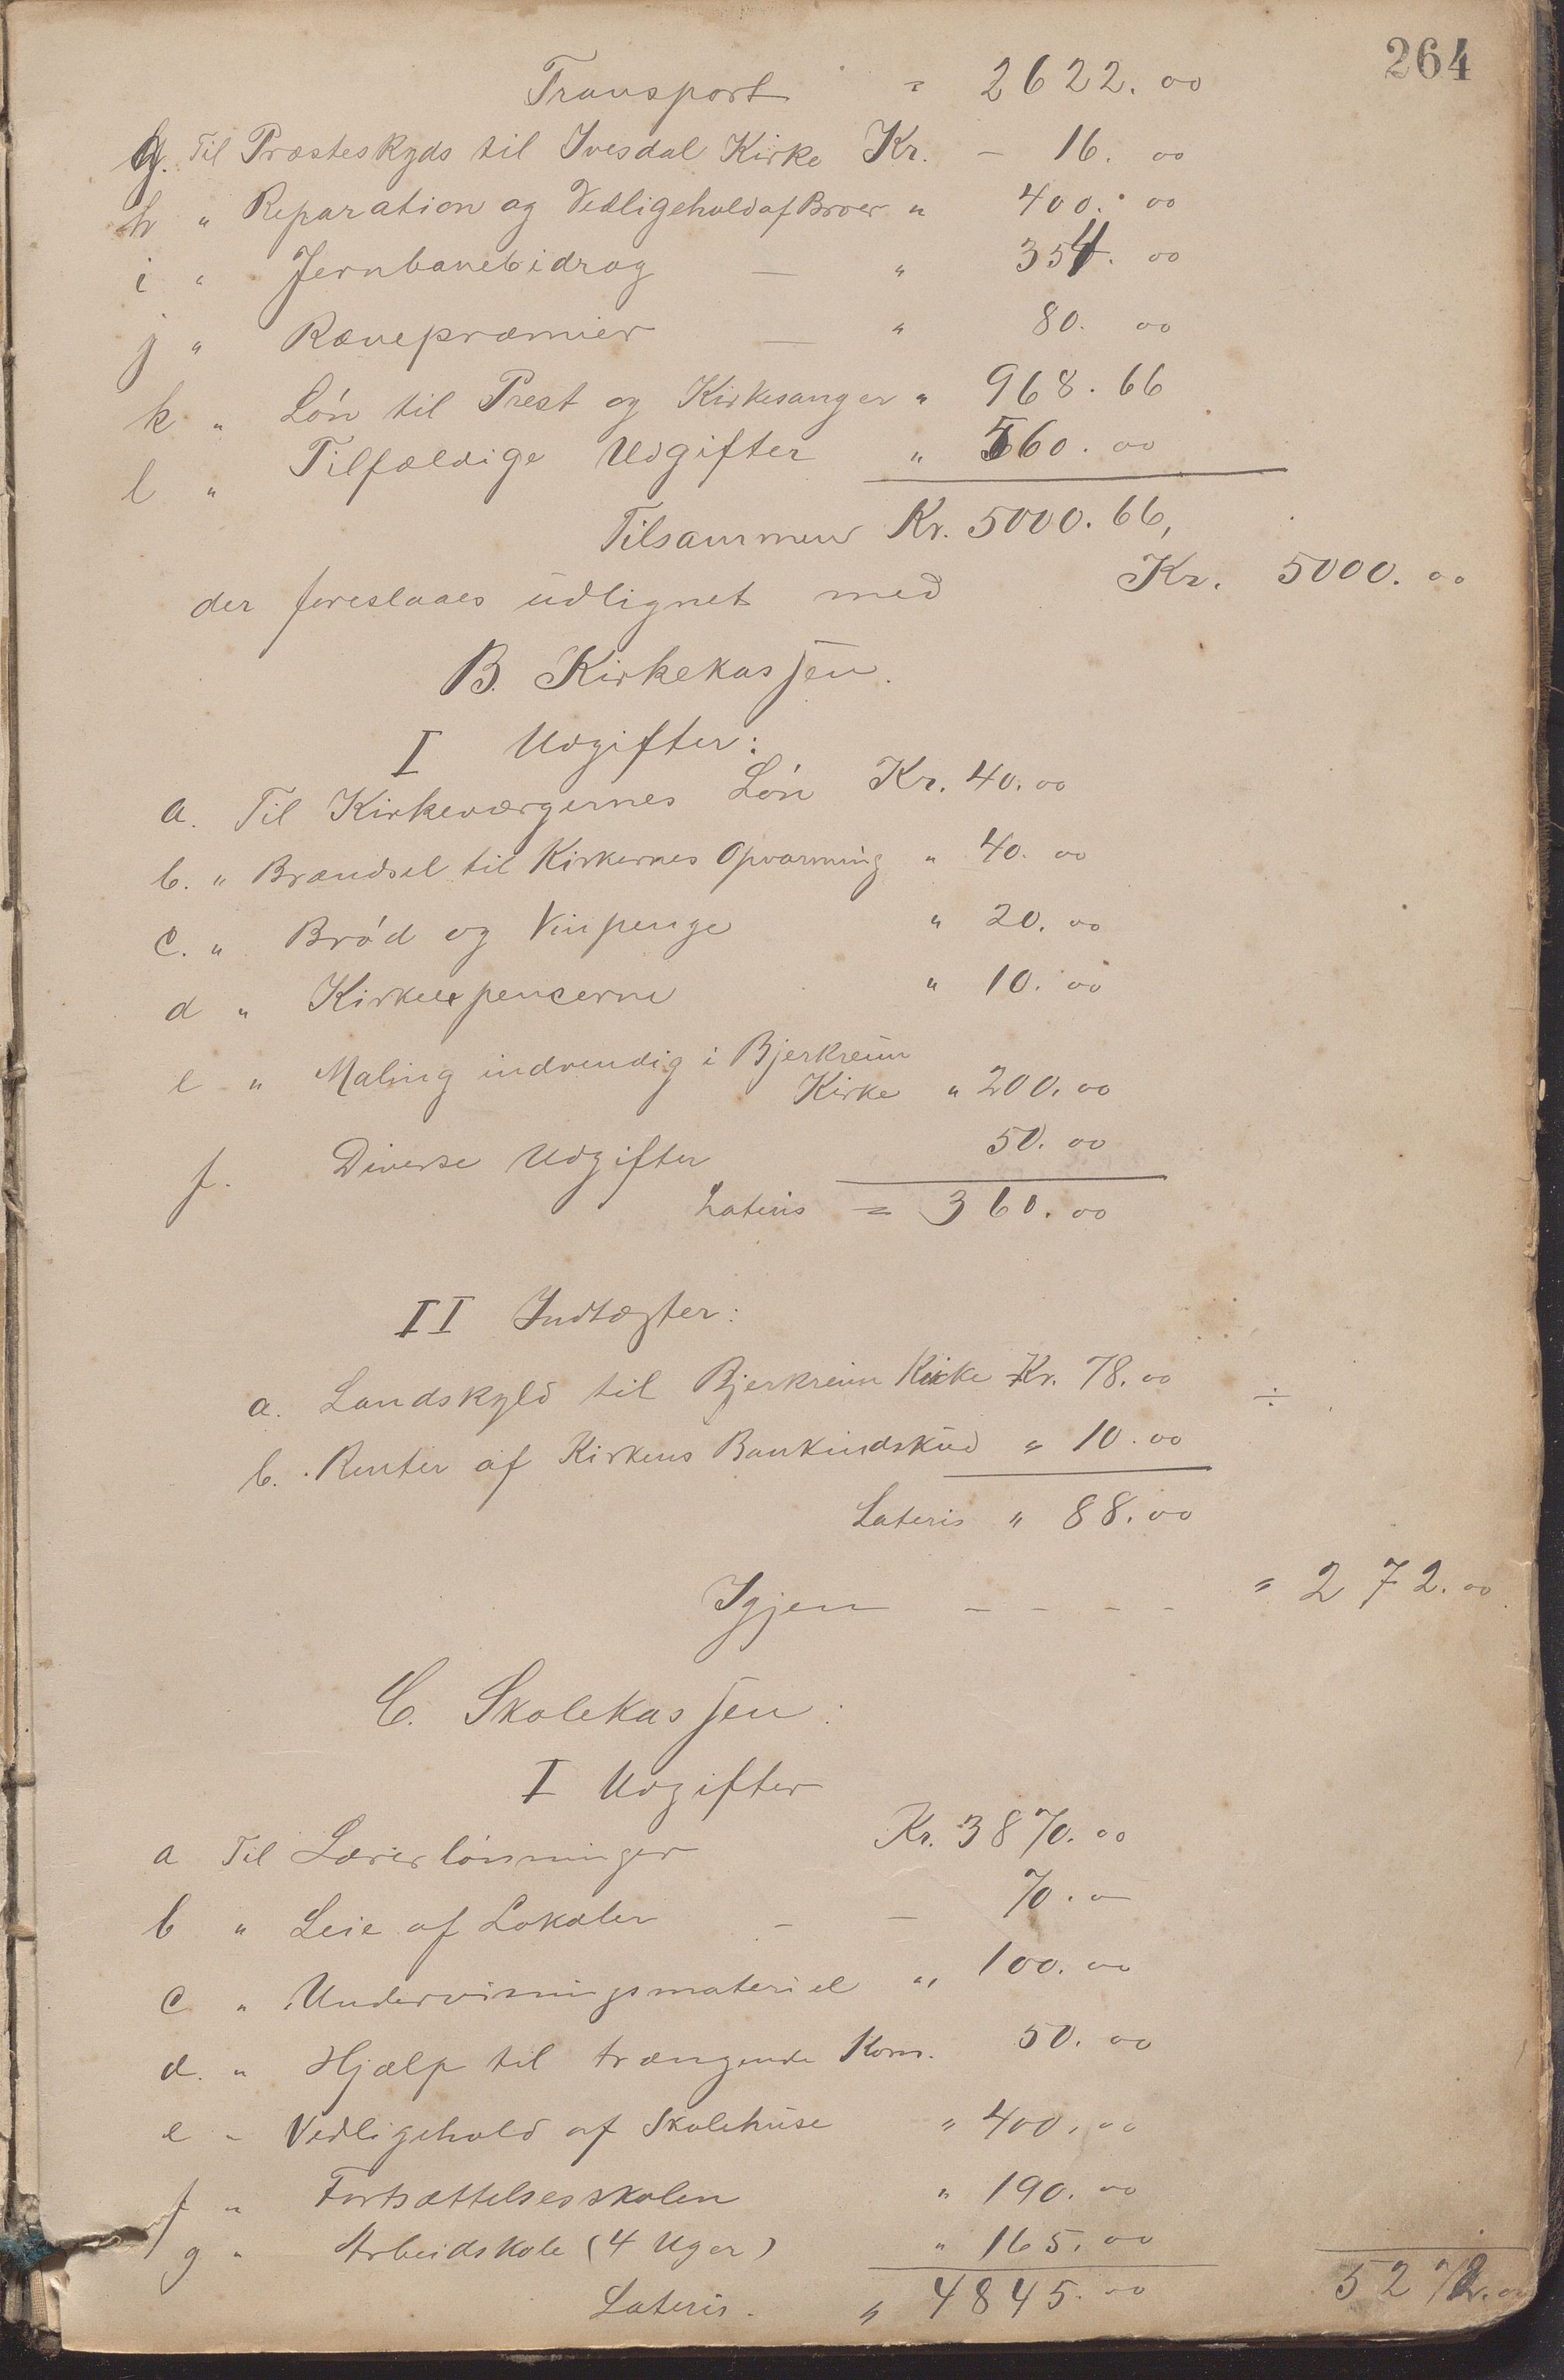 264
Transport = 2622.00
g. Til Præsteskyds til Ivesdal Kirke Kr. - 16.00
h " Reparation og Vedligehold af Broer " 400.00
i " Jernbanebidrag — " 354.00
j " Rævepræmier — " 80.00
k " Løn til Prest og Kirkesanger " 968.66
l " Tilfældige Udgifter " 560.00
Tilsammen Kr. 5000.66,
der foreslaaes udlignet med Kr. 5000.00
B. Kirkekassen.
I Udgifter:
a. Til Kirkeværgernes Løn Kr. 40.00
b. " Brændsel til Kirkernes Opvarming " 40.00
c. " Brød og Vinpenge " 20.00
d " Kirkeexpencerne " 10.00
e " Maling indvendig i Bjerkreim
Kirke " 200.00
f. Diverse Udgifter 50.00
Lateris = 360.00
II Indtægter:
a. Landskyld til Bjerkreim Kirke Kr. 78.00 ÷
b. Renter af Kirkens Bankindskud " 10.00
Lateris " 88.00
Igjen - - - - = 272.00
C. Skolekassen:
I Udgifter
a Til Lærerlønninger Kr. 3870.00
b " Leie af Lokaler - - 70.00
c " Undervisningsmateriel " 100.00
d. " Hjælp til trængende Kom. 50.00
e - Vedligehold af Skolehuse " 400.00
f " Fortsættelsesskolen " 190.00
g " Arbeidskole (4 Uger) " 165.00
Lateris. " 4845.00 5272.00